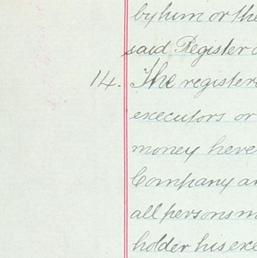 by him or the
said Register
14. The register
executors or
money here
Company an
all persons
holder his exe